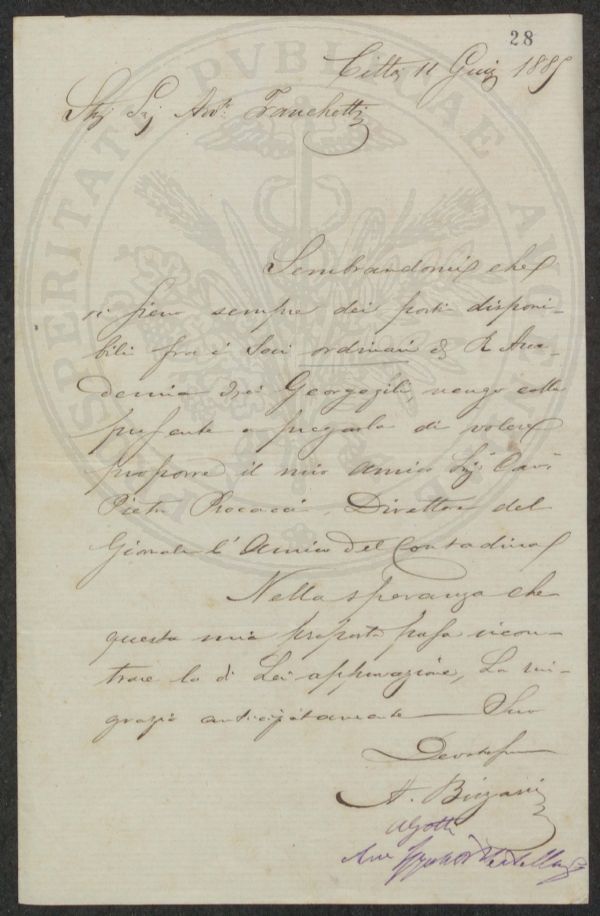 28
Città 11 Giug 1885
Sig Avv. Franchetti
Sembrandomi che
vi sieno sempre dei posti disponi-
bili fra i Soci ordinari d R. Acca-
demia dei Georgofili, vengo colla
presente a pregarla di volere
proporre il mio amico Sig Cav:
Pietro Direttore del
Giornale l'Amico del Contadino
Nella speranza che
questa mia proposta possa incon-
trare la di Lei approvazione, La rin-
grazio anticipatamente Suo
Devotissimo
A.